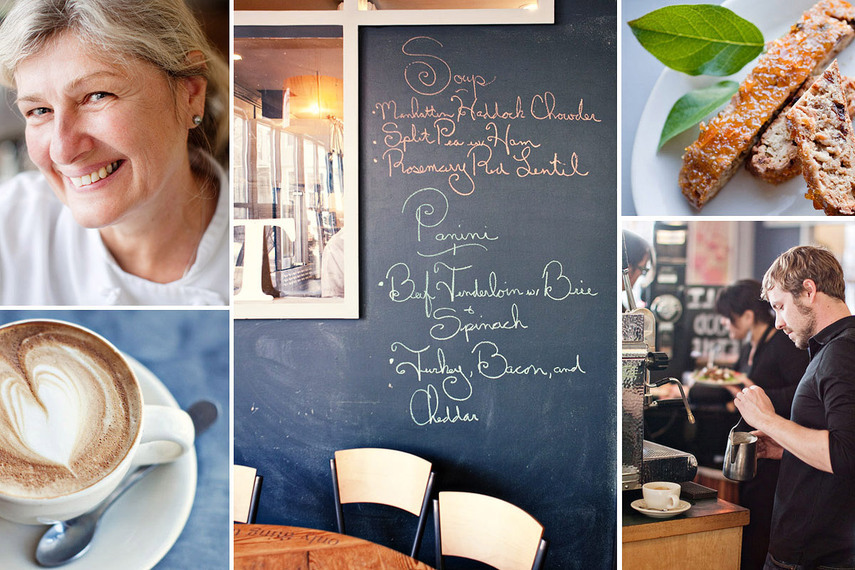 Soup
• Manhattan Haddock Chowder
• Split Pea w/ Ham
• Rosemary Red Lentil
Panini
• Beef Tenderloin w/ Brie
+
Spinach
• Turkey, Bacon, and
Cheddar
T